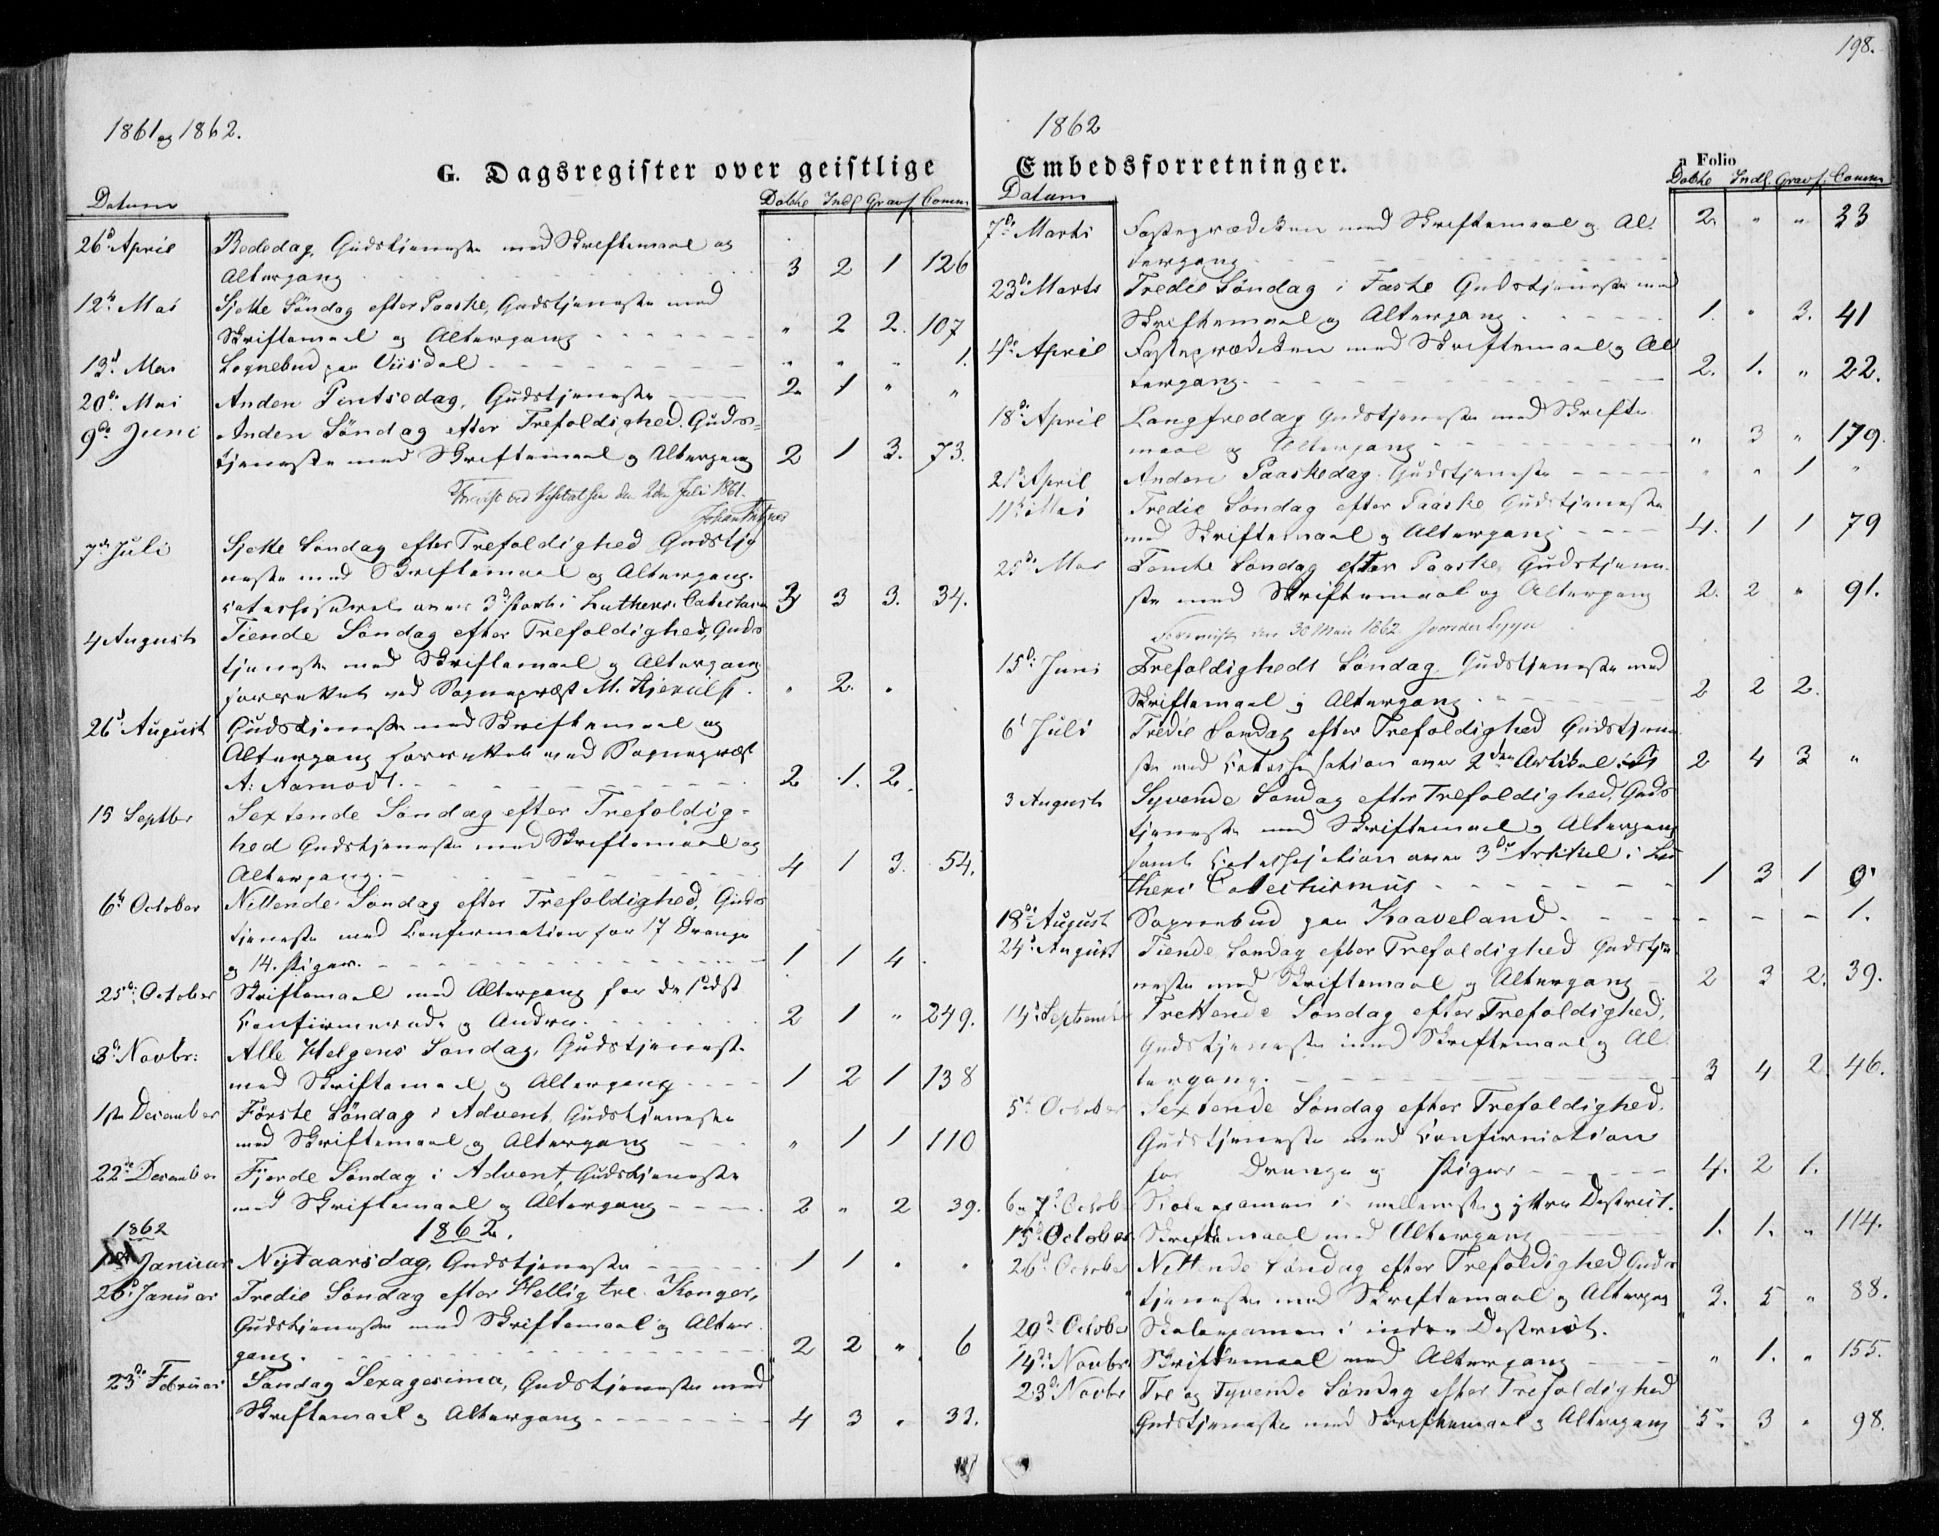 1861 og 1862.
G. Dagsregister over geistlige
Datum Dobte Indl. Gravf. Comm.
26d April Bededag, Gudstjeneste med Skriftemaal og
Altergang 3 2 1 126
12te Mai Sjette Søndag efter Paaske, Gudstjeneste med
Skriftemaal og Altergang " 2 2. 107
13d Mai Sognebud paa " " " 1.
20de Mai Anden Pintsedag, Gudstjeneste 2 1 " "
9de Juni Anden Søndag efter Trefoldighed. Guds=
tjeneste med Skriftemaal og Altergang 2 1 3. 73.
den 2den Juli 1861.
7de Juli Sjette Søndag efter Trefoldighed Gudstje
neste med Skriftemaal og Altergang.
over 3d Part i Luthers 3 3 3. 34.
4 August Tiende Søndag efter Trefoldighed, Guds
tjeneste med Skriftemaal og Altergang
forrettet ved Sognepræst M. " 2. "
26d August Gudstjeneste med Skriftemaal og
Altergang forrettet ved Sognepræst
A: Aamodt. 2 1. 2.
15 Septbr Sextende Søndag efter Trefoldig=
hed Gudstjeneste med Skriftemaal og
Altergang. 4 1 3. 54.
6te October Nittende Søndag efter Trefoldighed, Guds
tjeneste med Confirmation for 17 Drenge
og 14. Piger. 1 1 4 .
25de October Skriftemaal med Altergang for de sidst
Confirmerede og Andre. 2 1 " 249.
3d Novbr: Alle Helgens Søndag, Gudstjeneste
med Skriftemaal og Altergang 1 2 1 138
1ste December Første Søndag i Advent, Gudstjeneste
med Skriftemaal og Altergang " 1 1 110
22de December Fjerde Søndag i Advent, Gudstjeneste
med Skriftemaal og Altergang 2 " 2 39.
1862 1862.
1ste Januar Nytaarsdag, Gudstjeneste 1 1 . .
26d Januar Tredie Søndag efter Hellig tre Konger,
Gudstjeneste med Skriftemaal og Alter
gang. 2 2 " 6
23de Februar Søndag Sexagesima, Gudstjeneste med
Skriftemaal og Altergang 4 3 " 33.
198.
1862
Embedsforretninger.
n Folio
Datum Dobte Indl. Gravf. Comm
7de Marts Fasteprædiken med Skriftemaal og Al=
tergang 2. " " 33
23de Marts Tredie Søndag i Faste Gudstjeneste med
Skriftemaal og Altergang 1. " 3. 41
4de April Fasteprædiken med Skriftemaal og Al
tergang. 2. 1. " 22.
18d April Langfredag Gudstjeneste med Skrifte
maal og Altergang " 3 " 179.
21d April Anden Paaskedag. Gudstjeneste " " 1 "
11te Mai Tredie Søndag efter Paaske Gudstjeneste
med Skriftemaal og Altergang 4. 1 1 79
25de Mai Femte Søndag efter Paaske, Gudstjene
ste med Skriftemaal og Altergang 2. 2 " 91.
den 30 Mai 1862
15d Juni Trefoldigheds Søndag. Gudstjeneste med
Skriftemaal og Altergang 2 2 2.
6d Juli Tredie Søndag efter Trefoldighed Gudstjene
ste med Catechisation over 2den Artikel 2 4 3 "
3 August Syvende Søndag efter Trefoldighed, Guds
tjeneste med Skriftemaal og Altergang
samt Catechisation over 3de Artikel i Lu
theri Catechismus 1 3 1 9
18de August Sognebud paa Kaaveland 1.
24d August Tiende Søndag efter Trefoldighed Gudstje
neste med Skriftemaal og Altergang 2 3 2. 39.
14d September Trettende Søndag efter Trefoldighed,
Gudstjeneste med Skriftemaal og Al
tergang. 3 4 2 46.
5te October Sextende Søndag efter Trefoldighed.
Gudstjeneste med Confirmation
for Drenge og Piger 4. 2 1.
6 og 7d Octob Skoleexamen i mellemste og ydtre District.
15d October Skriftemaal med Altergang 1. 1. " 114.
26d October Nittende Søndag efter Trefoldighed Guds
tjeneste med Skriftemaal og Altergang 3. 5 " 88.
29d October Skoleexamen i indre District.
14de Novbr Skriftemaal med Altergang " 1. " 155.
23d Novbr Tre og Tyvende Søndag efter Trefoldighed
Gudstjeneste med Skriftemaal og Altergang 5 3 " 98.